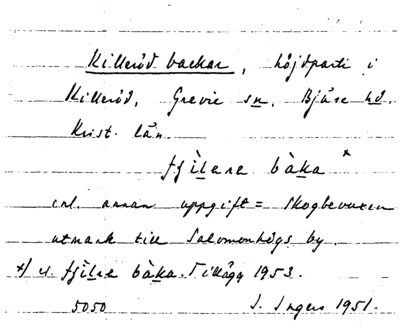 Killeröd backar, höjdparti i
Killeröd, Grevie sn, Bjäre hd.
Krist. län.
fjìlera bàka *
enl. annan uppgift = skogbevuxen
utmark till Salomonhögs by.
*/ u. fjìlra bàka. Tillägg 1953.
5050 I. Ingers 1951.